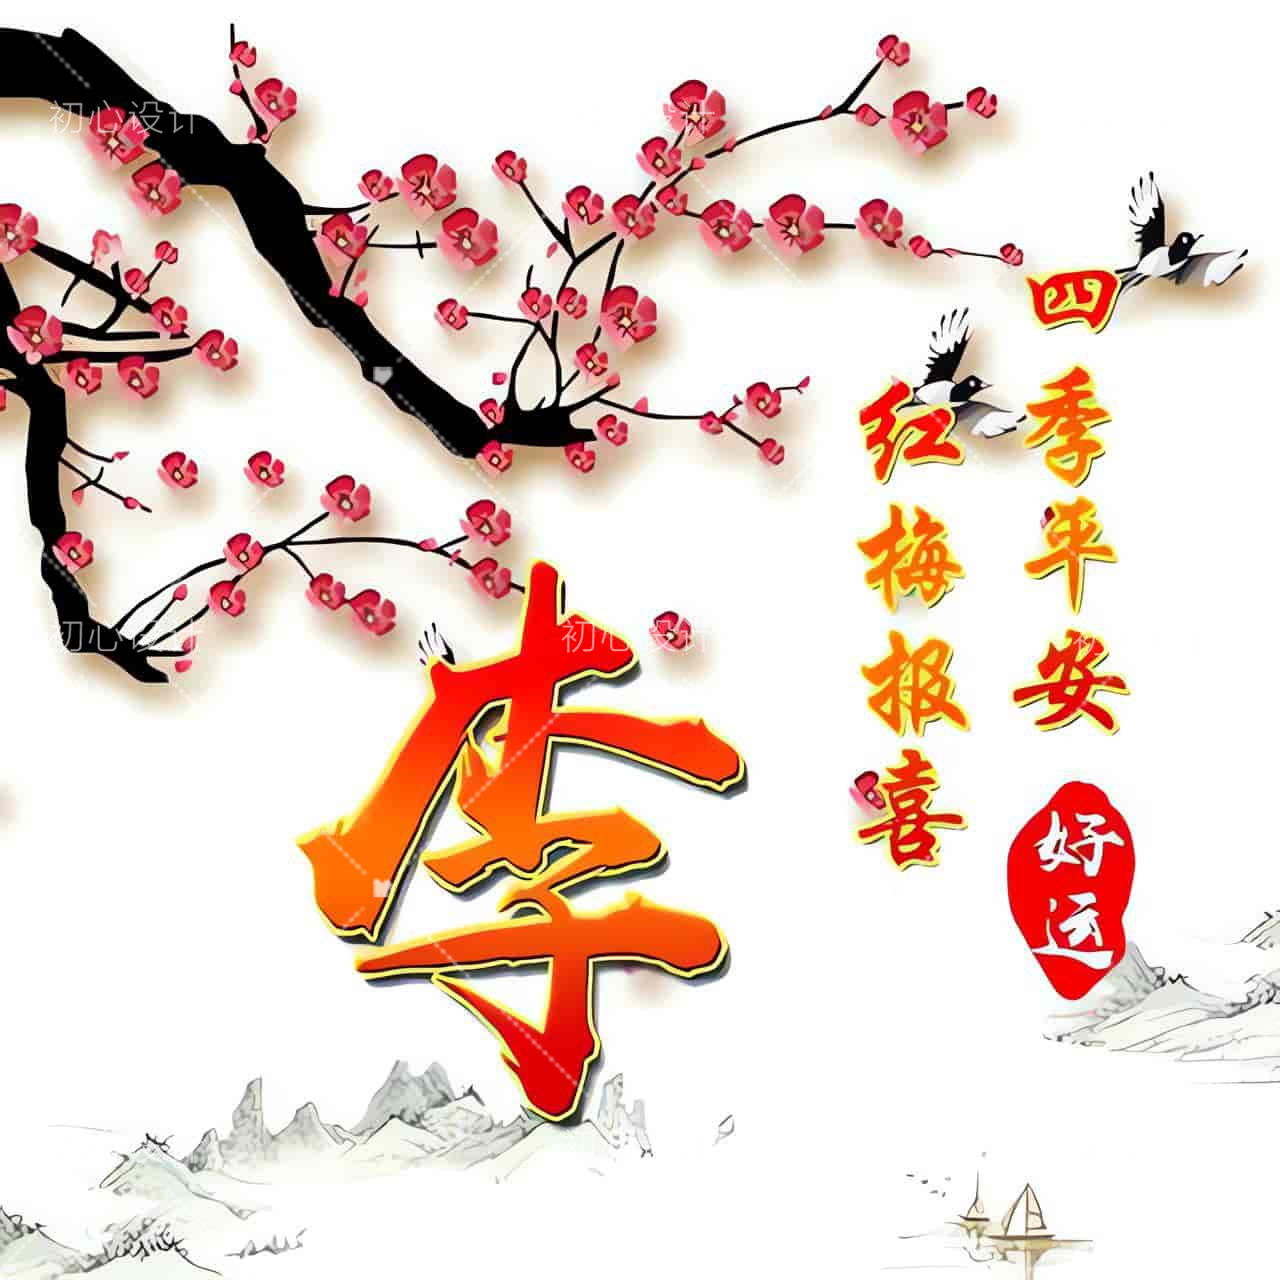 四季平安
红梅报喜
好运
李
初心设计
初心设计
初心设计